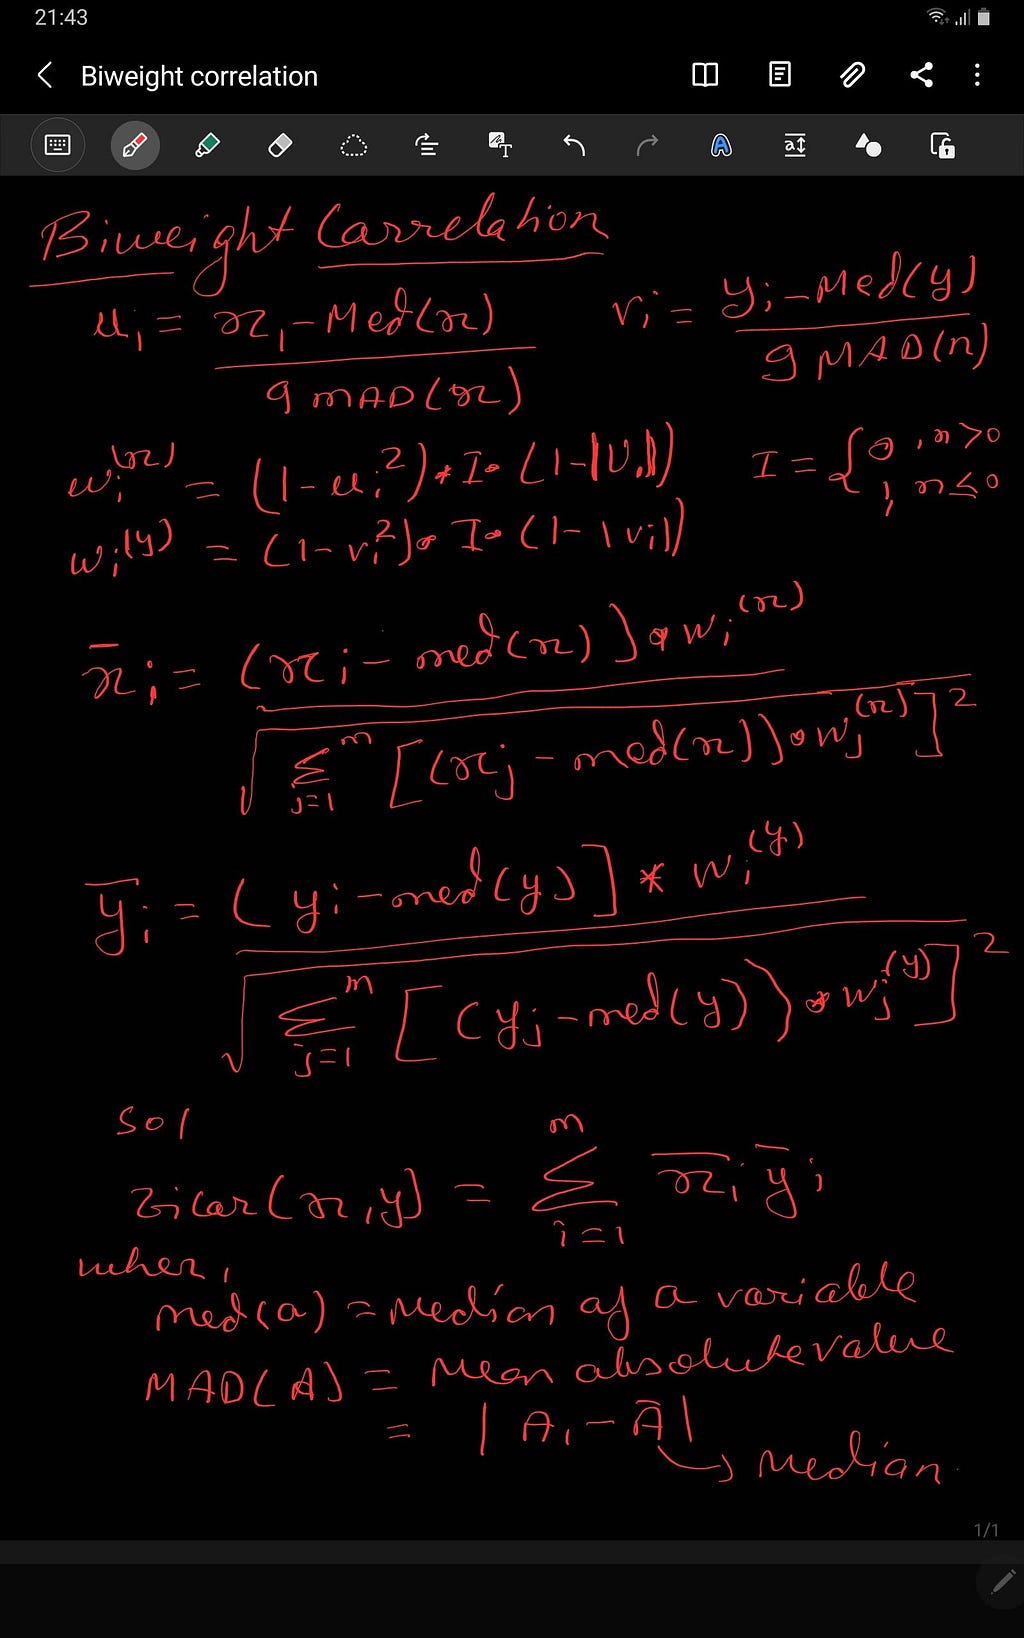 21:43
Biweight correlation
Biweight Correlation
u_i = (x_i - Med(x)) / (9 MAD(x))    v_i = (y_i - Med(y)) / (9 MAD(n))
w_i^(x) = (1-u_i^2) * I • (1-|U_i|)    I = { 0, x>0
1, x≤0
w_i^(y) = (1-v_i^2) • I • (1-|v_i|)
x̄_i = (x_i - med(x)) • w_i^(x)
√ Σ_{j=1}^{m} [(x_j - med(x)) • w_j^(x)]^2
ȳ_i = (y_i - med(y)] * w_i^(y)
√ Σ_{j=1}^{m} [(y_j - med(y)) • w_j^(y)]^2
so,
bicor(x,y) = Σ_{i=1}^{m} x̄_i ȳ_i
wher,
med(a) = Median of a variable
MAD(A) = Mean absolute value
= |A_i - Ā|
→ Median
1/1